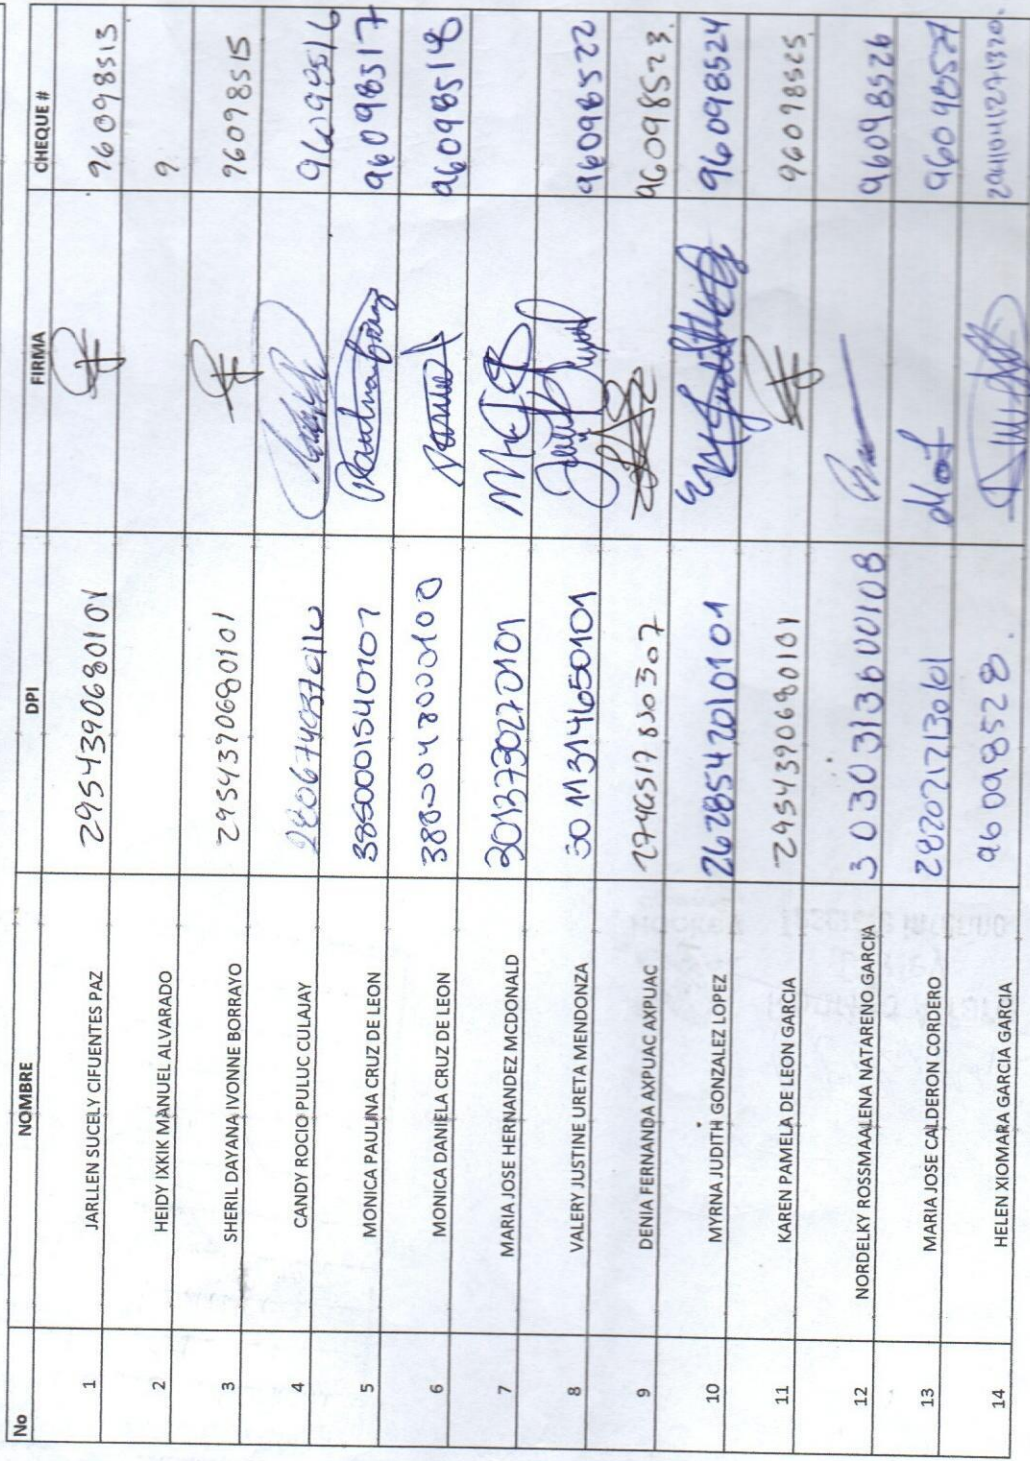 No NOMBRE DPI FIRMA CHEQUE #
1 JARLLEN SUCELY CIFUENTES PAZ 2954390680101 96098513
2 HEIDY IXKIK MANUEL ALVARADO 9
3 SHERIL DAYANA IVONNE BORRAYO 2954390680101 96098515
4 CANDY ROCIO PULUC CULAJAY 96098516
5 MONICA PAULINA CRUZ DE LEON 3850001540107 96098517
6 MONICA DANIELA CRUZ DE LEON 96098518
7 MARIA JOSE HERNANDEZ MCDONALD 3013730270101
8 VALERY JUSTINE URETA MENDONZA 3011314650101 96098522
9 DENIA FERNANDA AXPUAC AXPUAC 96098523.
10 MYRNA JUDITH GONZALEZ LOPEZ 2628542010101 96098524
11 KAREN PAMELA DE LEON GARCIA 2954390680101 96098525
12 NORDELKY ROSSMAALENA NATARENO GARCIA 3030313600108 96098526
13 MARIA JOSE CALDERON CORDERO 2820217130101 96098527
14 HELEN XIOMARA GARCIA GARCIA 96098528.